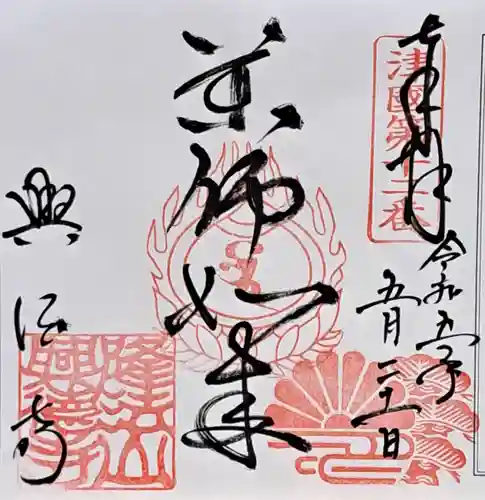 奉拝
津國第十二番
令和五年
五月二十一日
薬師如来
興徳寺